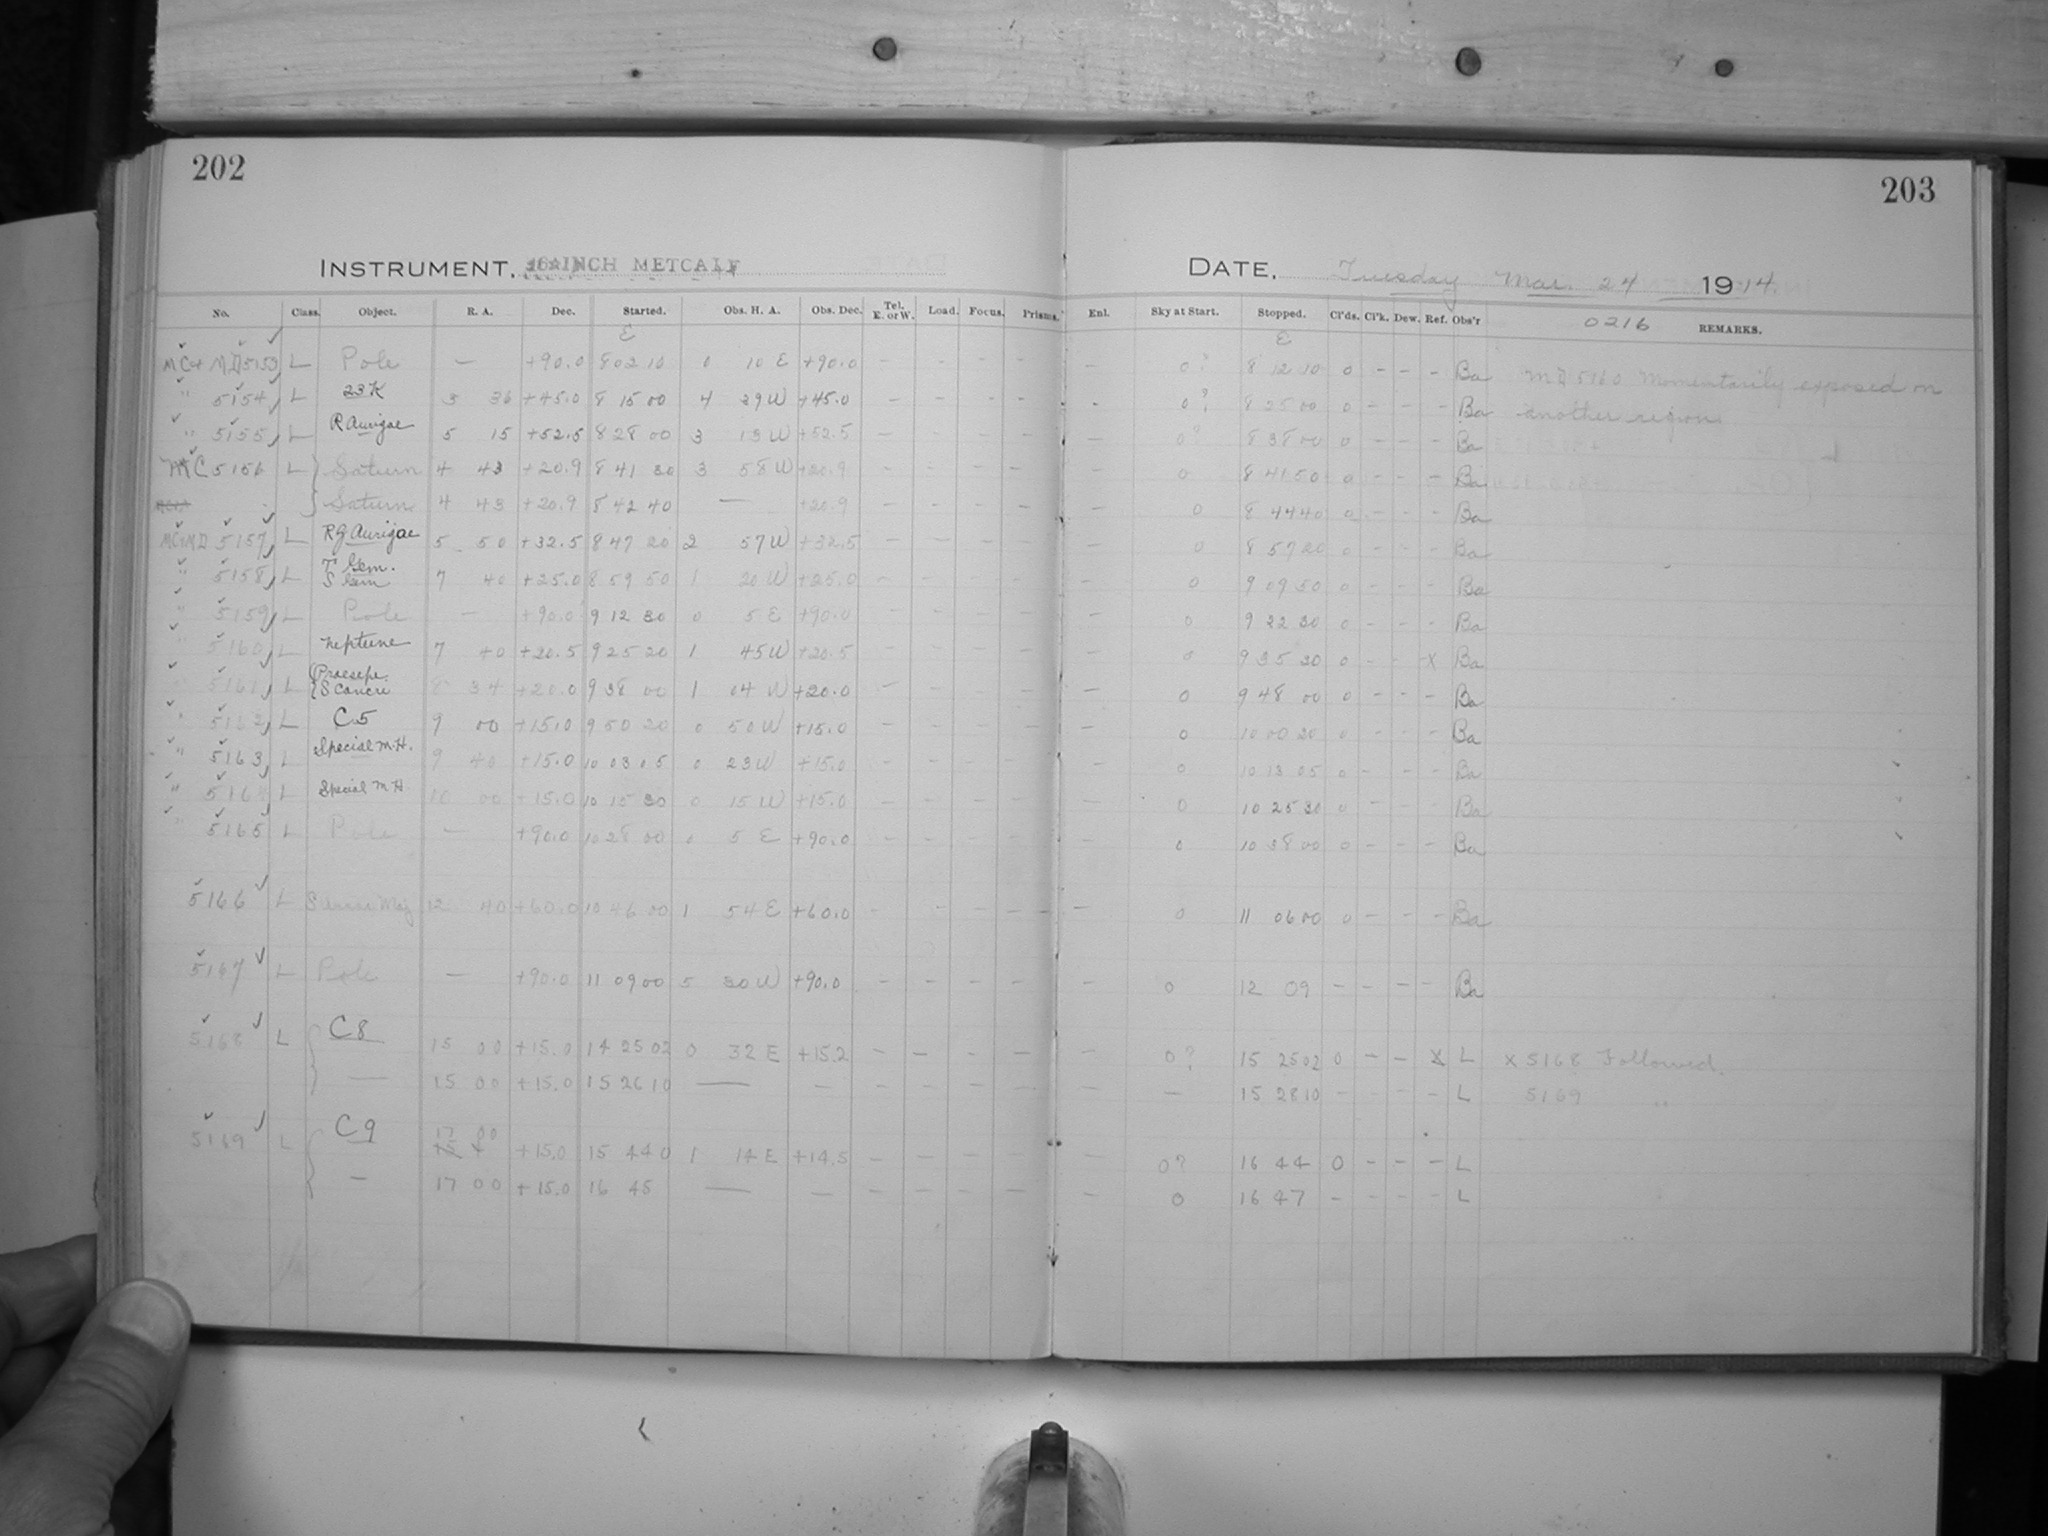 202
203
INSTRUMENT. 16 INCH METCALF
DATE. Tuesday Mar. 24 1914.
No. Class. Object. R. A. Dec. Started. Obs. H. A. Obs. Dec. Tel. E. or W. Load. Focus. Prisms. Enl. Sky at Start. Stopped. Cl'ds. Cl'k. Dew. Ref. Obs'r 0216 REMARKS.
E E
MC+MD 5153 L Pole — +90.0 8 02 10 0 10 E +90.0 - - - - - 0? 8 12 10 0 - - - Ba MD 5160 Momentarily exposed on
" 5154 L 23K 3 36 +45.0 8 15 00 4 29 W +45.0 - - - - - 0? 8 25 00 0 - - - Ba another region
" 5155 L R Aurigae 5 15 +52.5 8 28 00 3 13 W +52.5 - - - - - 0? 8 38 00 0 - - - Ba
MC 5156 L Saturn 4 43 +20.9 8 41 30 3 58 W +20.9 - - - - - 0 8 41 50 0 - - - Ba
Saturn 4 43 +20.9 8 42 40 — +20.9 - - - - - 0 8 44 40 0 - - - Ba
MC+MD 5157 L RG Aurigae 5 50 +32.5 8 47 20 2 57 W +32.5 - - - - - 0 8 57 20 0 - - - Ba
" 5158 L T Gem. S Gem 7 40 +25.0 8 59 50 1 20 W +25.0 - - - - - 0 9 09 50 0 - - - Ba
" 5159 L Pole — +90.0 9 12 30 0 5 E +90.0 - - - - - 0 9 22 30 0 - - - Ba
" 5160 L Neptune 7 40 +20.5 9 25 20 1 45 W +20.5 - - - - - 0 9 35 30 0 - - -X Ba
" 5161 L Praesepe. S Cancri 8 34 +20.0 9 38 00 1 04 W +20.0 - - - - - 0 9 48 00 0 - - - Ba
" 5162 L C5 9 00 +15.0 9 50 20 0 50 W +15.0 - - - - - 0 10 00 20 0 - - - Ba
" 5163 L Special M.H. 9 40 +15.0 10 03 05 0 23 W +15.0 - - - - - 0 10 13 05 0 - - - Ba
" 5164 L Special M H 10 00 +15.0 10 15 30 0 15 W +15.0 - - - - - 0 10 25 30 0 - - - Ba
" 5165 L Pole — +90.0 10 28 00 0 5 E +90.0 - - - - - 0 10 38 00 0 - - - Ba
5166 L S Ursae Maj 12 40 +60.0 10 46 00 1 54 E +60.0 - - - - - 0 11 06 00 0 - - - Ba
5167 L Pole — +90.0 11 09 00 5 30 W +90.0 - - - - - 0 12 09 - - - - Ba
5168 L C8 15 00 +15.0 14 25 02 0 32 E +15.2 - - - - - 0? 15 25 02 0 - - X L X 5168 Followed.
— 15 00 +15.0 15 26 10 — - - - - - - - 15 28 10 - - - - L 5169 "
5169 L C9 17 00 +15.0 15 44 0 1 14 E +14.5 - - - - - 0? 16 44 0 - - - L
— 17 00 +15.0 16 45 — - - - - - - 0 16 47 - - - - L